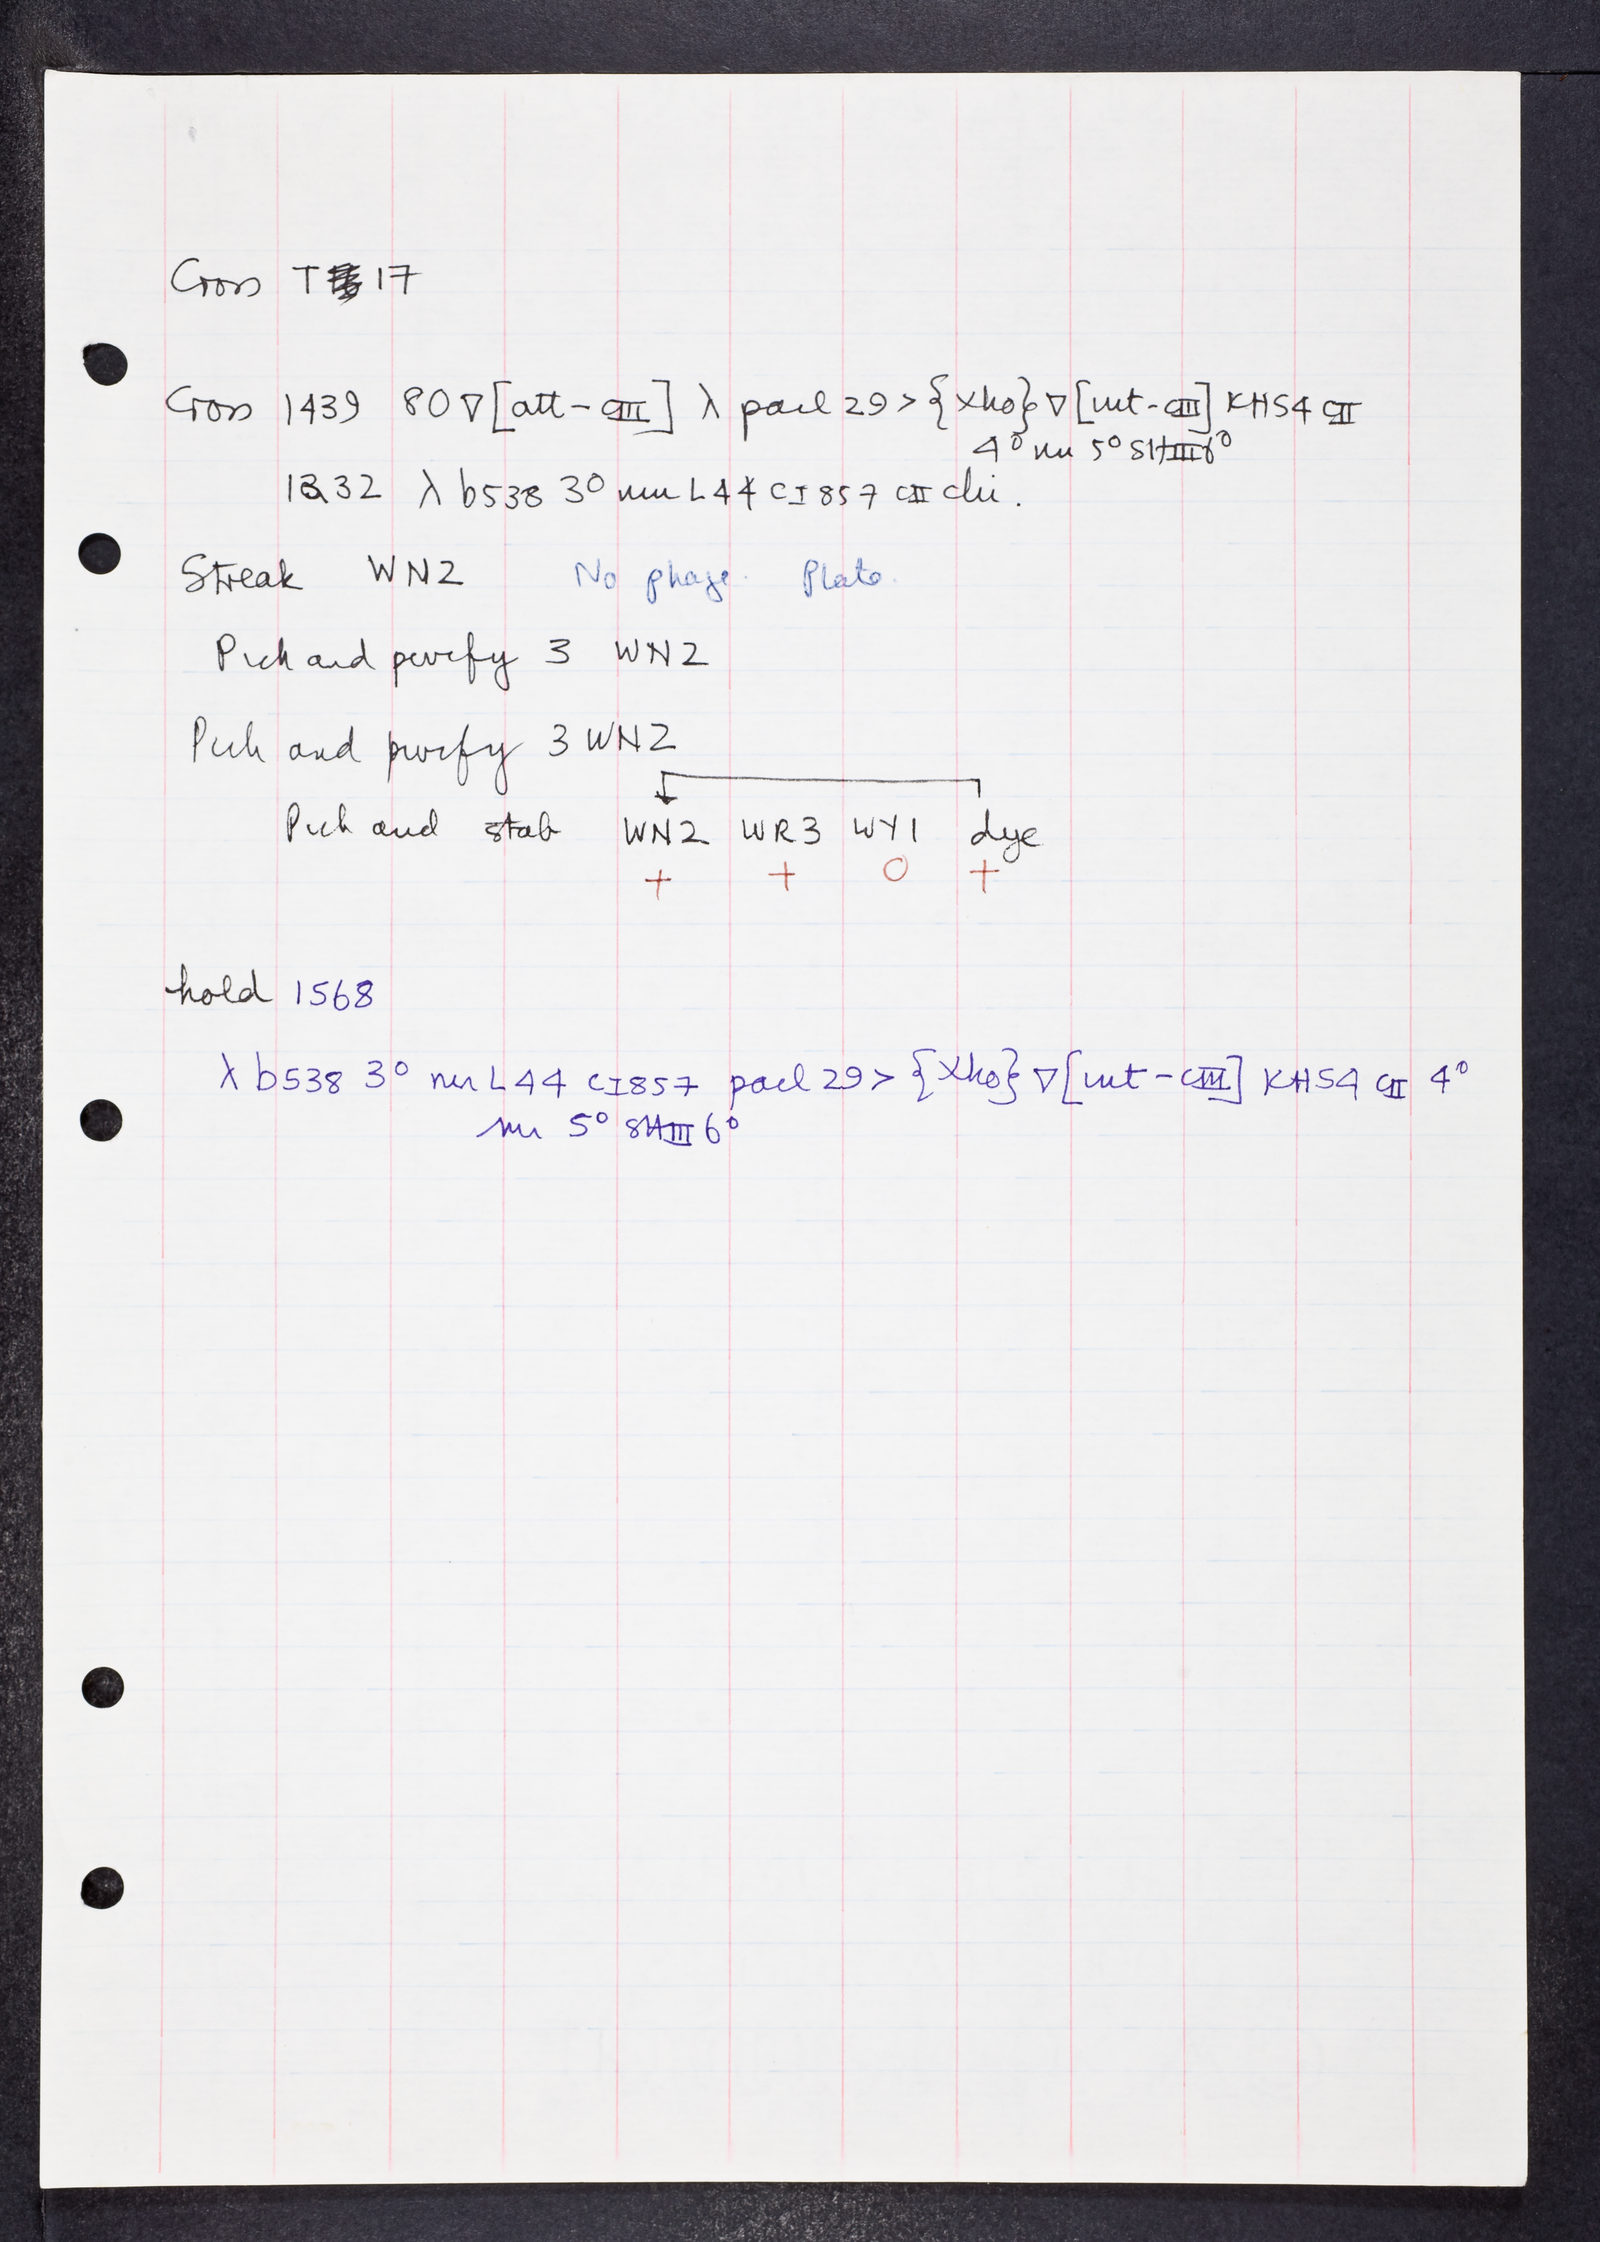 Cross T 17
Cross 1439 80 ∇[att - cIII] λ pacl 29 > {Xho} ∇ [int - cIII] KH54 cII
4° nin 5° SHIII6°
1332 λ b538 3° nin L44 cI857 cII chi.
Streak WN2 No phage. Plate.
Pick and purify 3 WN2
Pick and purify 3 WN2
Pick and stab WN2 WR3 WY1 dye
+ + O +
hold 1568
λ b538 3° nin L44 cI857 pacl 29 > {Xho} ∇ [int - cIII] KH54 cII 4°
nin 5° SHIII 6°